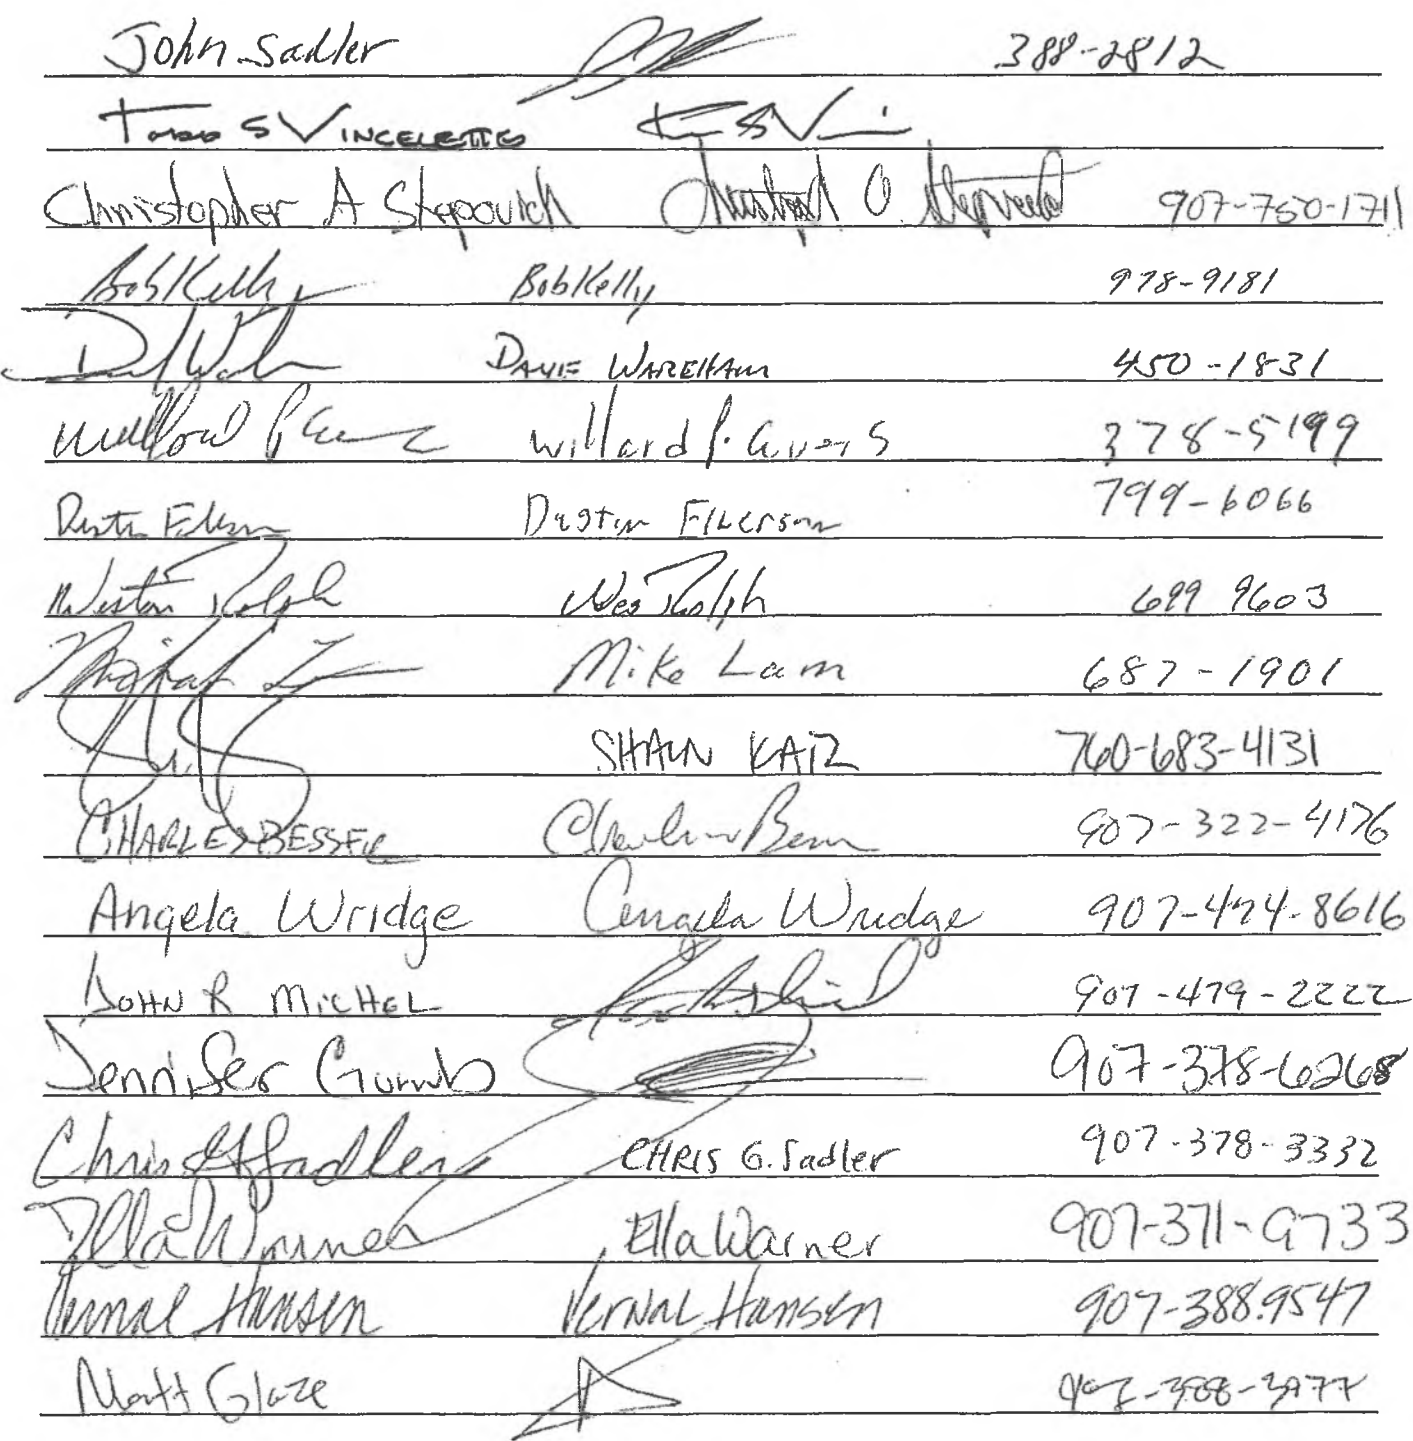 John Sadler 388-2812
Todd S Vincelette
Christopher A Stepovich Christoph A. Stepovich 907-750-1711
Bob Kelly Bob Kelly 978-9181
DAVE WAREHAM 450-1831
Willard P. 378-5199
Dustin 799-6066
Weston Rolph Wes Rolph 699 9603
Mike Lam 687-1901
SHAUN KATZ 760-683-4131
CHARLES BESSER 907-322-4176
Angela Wridge Angela Wridge 907-474-8616
JOHN R MICHEL 907-479-2222
Jennifer 907-378-6268
Chris G Sadler CHRIS G. Sadler 907-378-3332
Ella Warner Ella Warner 907-371-9733
Vernal Hansen Vernal Hansen 907-388.9547
Matt Glaze